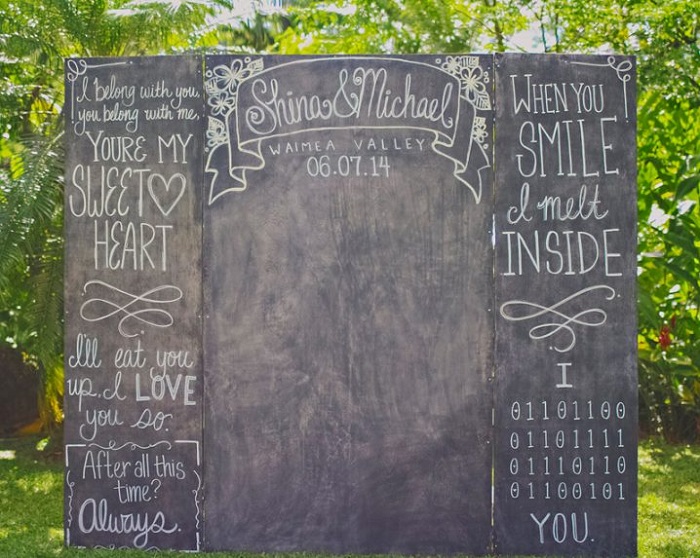 I belong with you,
you belong with me,
YOU'RE MY
SWEET
HEART
I'll eat you
up, I LOVE
you so.
After all this
time?
Always.
Shina & Michael
WAIMEA VALLEY
06.07.14
WHEN YOU
SMILE
I melt
INSIDE
I
01101100
01101111
01110110
01100101
YOU.